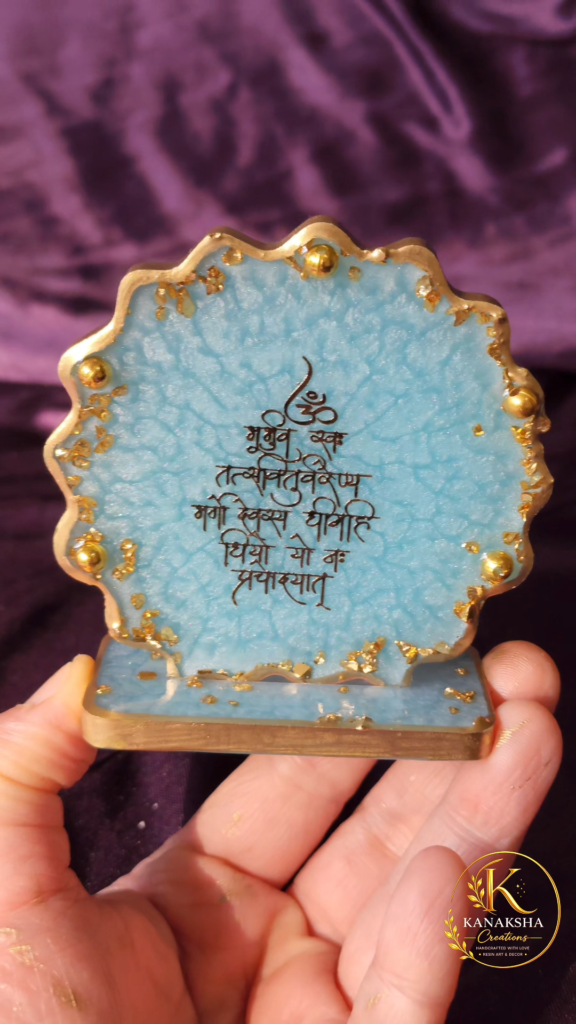 ॐ
भूर्भुव स्वः
तत्सवितुर्वरेण्य
भर्गो देवस्य धीमहि
धियो यो नः
प्रचोदयात्
K
KANAKSHA
Creations
HANDCRAFTED WITH LOVE
• RESIN ART & DECOR •